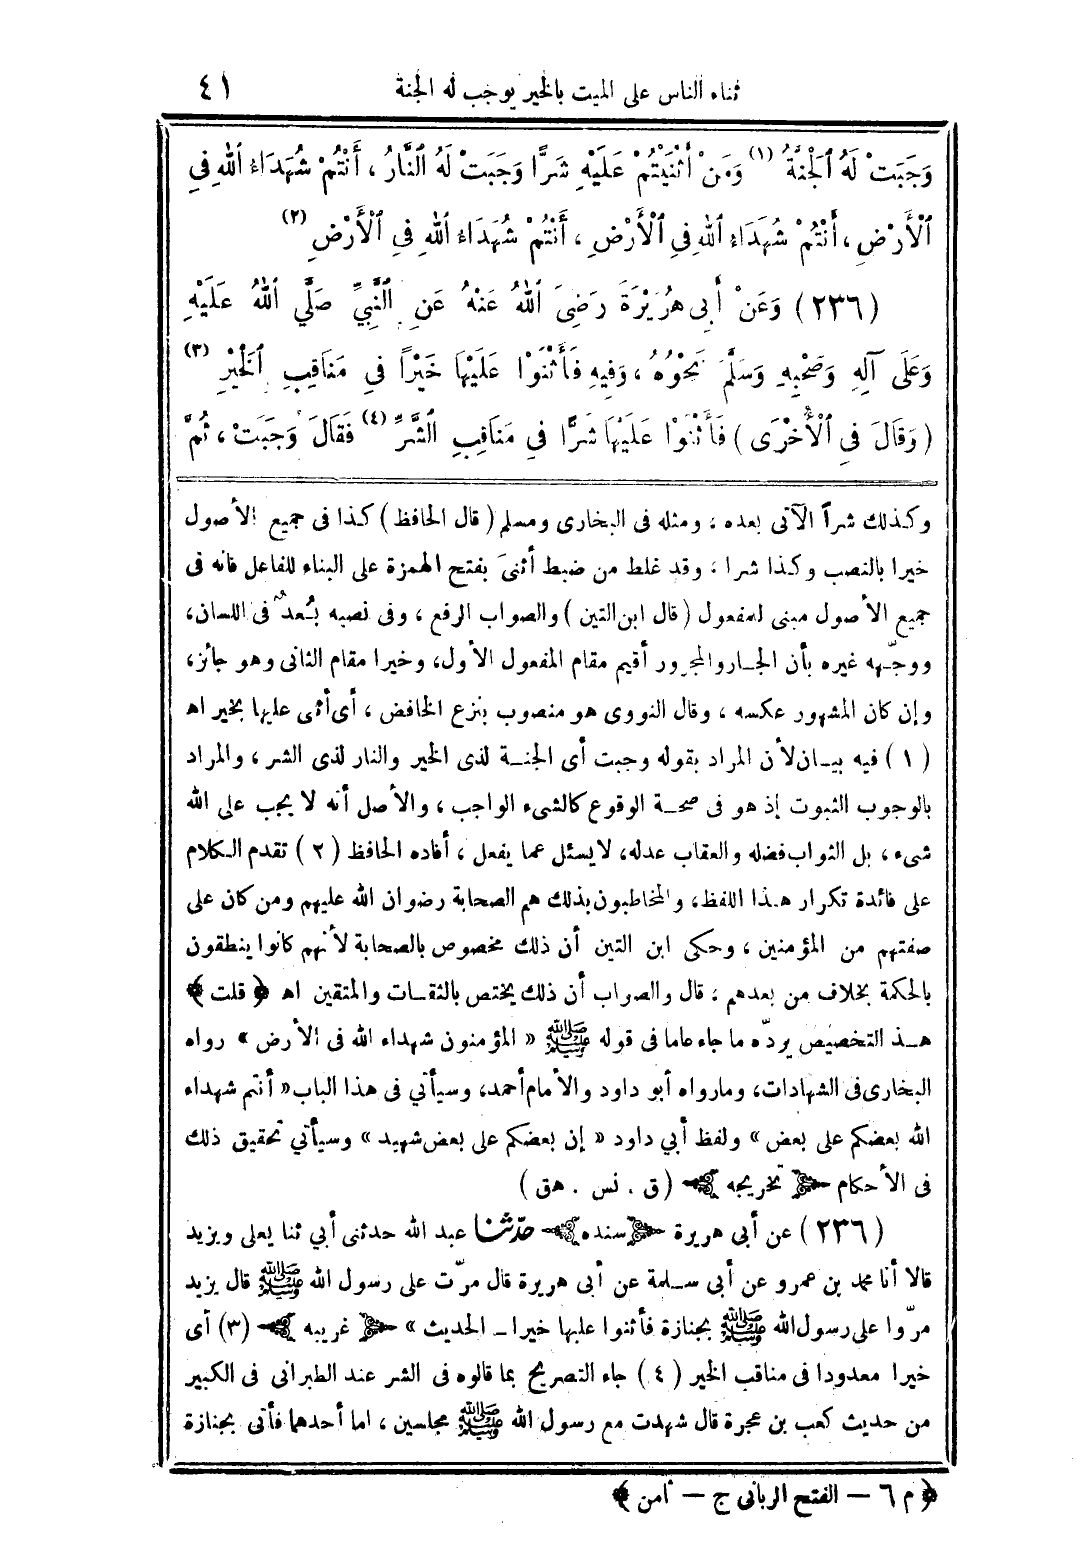 ثناء الناس على الميت بالخير يوجب له الجنة ٤١
وَجَبَتْ لَهُ الْجَنَّةُ (١) وَمَنْ أَثْنَيْتُمْ عَلَيْهِ شَرًّا وَجَبَتْ لَهُ النَّارُ ، أَنْتُمْ شُهَدَاءُ اللهِ فِي
الْأَرْضِ ، أَنْتُمْ شُهَدَاءُ اللهِ فِي الْأَرْضِ ، أَنْتُمْ شُهَدَاءُ اللهِ فِي الْأَرْضِ (٢)
(٢٣٦) وَعَنْ أَبِي هُرَيْرَةَ رَضِيَ اللهُ عَنْهُ عَنِ النَّبِيِّ صَلَّي اللهُ عَلَيْهِ
وَعَلَى آلِهِ وَصَحْبِهِ وَسَلَّمَ نَحْوُهُ ، وَفِيهِ فَأَثْنَوْا عَلَيْهَا خَيْرًا فِي مَنَاقِبِ الْخَيْرِ (٣)
(وَقَالَ فِي الْأُخْرَى) فَأَثْنَوْا عَلَيْهَا شَرًّا فِي مَنَاقِبِ الشَّرِّ (٤) فَقَالَ وَجَبَتْ ، ثُمَّ
وكذلك شراً الآتى بعده ، ومثله فى البخارى ومسلم (قال الحافظ) كذا فى جميع الأصول
خيرا بالنصب وكذا شرا ، وقد غلط من ضبط أثنىَ بفتح الهمزة على البناء للفاعل فانه فى
جميع الأصول مبنى للمفعول (قال ابن التين) والصواب الرفع ، وفى نصبه بُعدٌ فى اللسان،
ووجّهه غيره بأن الجار والمجرور أقيم مقام المفعول الأول، وخيرا مقام الثانى وهو جائز،
وإن كان المشهور عكسه ، وقال النووى هو منصوب بنزع الخافض ، أى أثنى عليها بخير اه
(١) فيه بيان لأن المراد بقوله وجبت أى الجنة لذى الخير والنار لذى الشر ، والمراد
بالوجوب الثبوت إذ هو فى صحة الوقوع كالشىء الواجب ، والأصل أنه لا يجب على الله
شىء ، بل الثواب فضله والعقاب عدله، لا يسئل عما يفعل ، أفاده الحافظ (٢) تقدم الكلام
على فائدة تكرار هذا اللفظ، والمخاطبون بذلك هم الصحابة رضوان الله عليهم ومن كان على
صفتهم من المؤمنين ، وحكى ابن التين أن ذلك مخصوص بالصحابة لأنهم كانوا ينطقون
بالحكمة بخلاف من بعدهم ، قال والصواب أن ذلك يختص بالثقات والمتقين اه ﴿قلت﴾
هـذ التخصيص يردّه ما جاء عاما فى قوله ﷺ « المؤمنون شهداء الله فى الأرض » رواه
البخارى فى الشهادات، ومارواه أبو داود والأمام أحمد، وسيأتي فى هذا الباب « أنتم شهداء
الله بعضكم على بعض » ولفظ أبي داود « إن بعضكم على بعض شهيد » وسيأتي تحقيق ذلك
فى الأحكام ﴿تخريجه﴾ (ق . نس . هق)
(٢٣٦) عن أبى هريرة ﴿سنده﴾ حدّثنا عبد الله حدثنى أبي ثنا يعلى ويزيد
قالا أنا محمد بن عمرو عن أبى سلمة عن أبى هريرة قال مرّت على رسول الله ﷺ قال يزيد
مرّوا على رسول الله ﷺ بجنازة فأثنوا عليها خيرا ــ الحديث » ﴿غريبه﴾ (٣) أى
خيرا معدودا فى مناقب الخير (٤) جاء التصريح بما قالوه فى الشر عند الطبرانى فى الكبير
من حديث كعب بن عجرة قال شهدت مع رسول الله ﷺ مجلسين ، اما أحدهما فأتى بجنازة
﴿م ٦ — الفتح الربانى ج — ثامن﴾